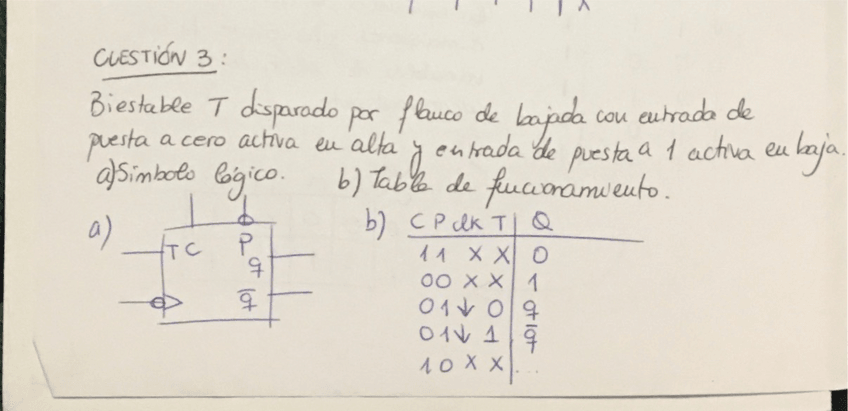 CUESTIÓN 3:
Biestable T disparado por flanco de bajada con entrada de
puesta a cero activa en alta y entrada de puesta a 1 activa en baja.
a) Simbolo lógico. b) Tabla de funcionamiento.
a) b) C P clk T Q
T C P 1 1 X X 0
q 0 0 X X 1
q̅ 0 1 ↓ 0 q
0 1 ↓ 1 q̅
1 0 X X ...